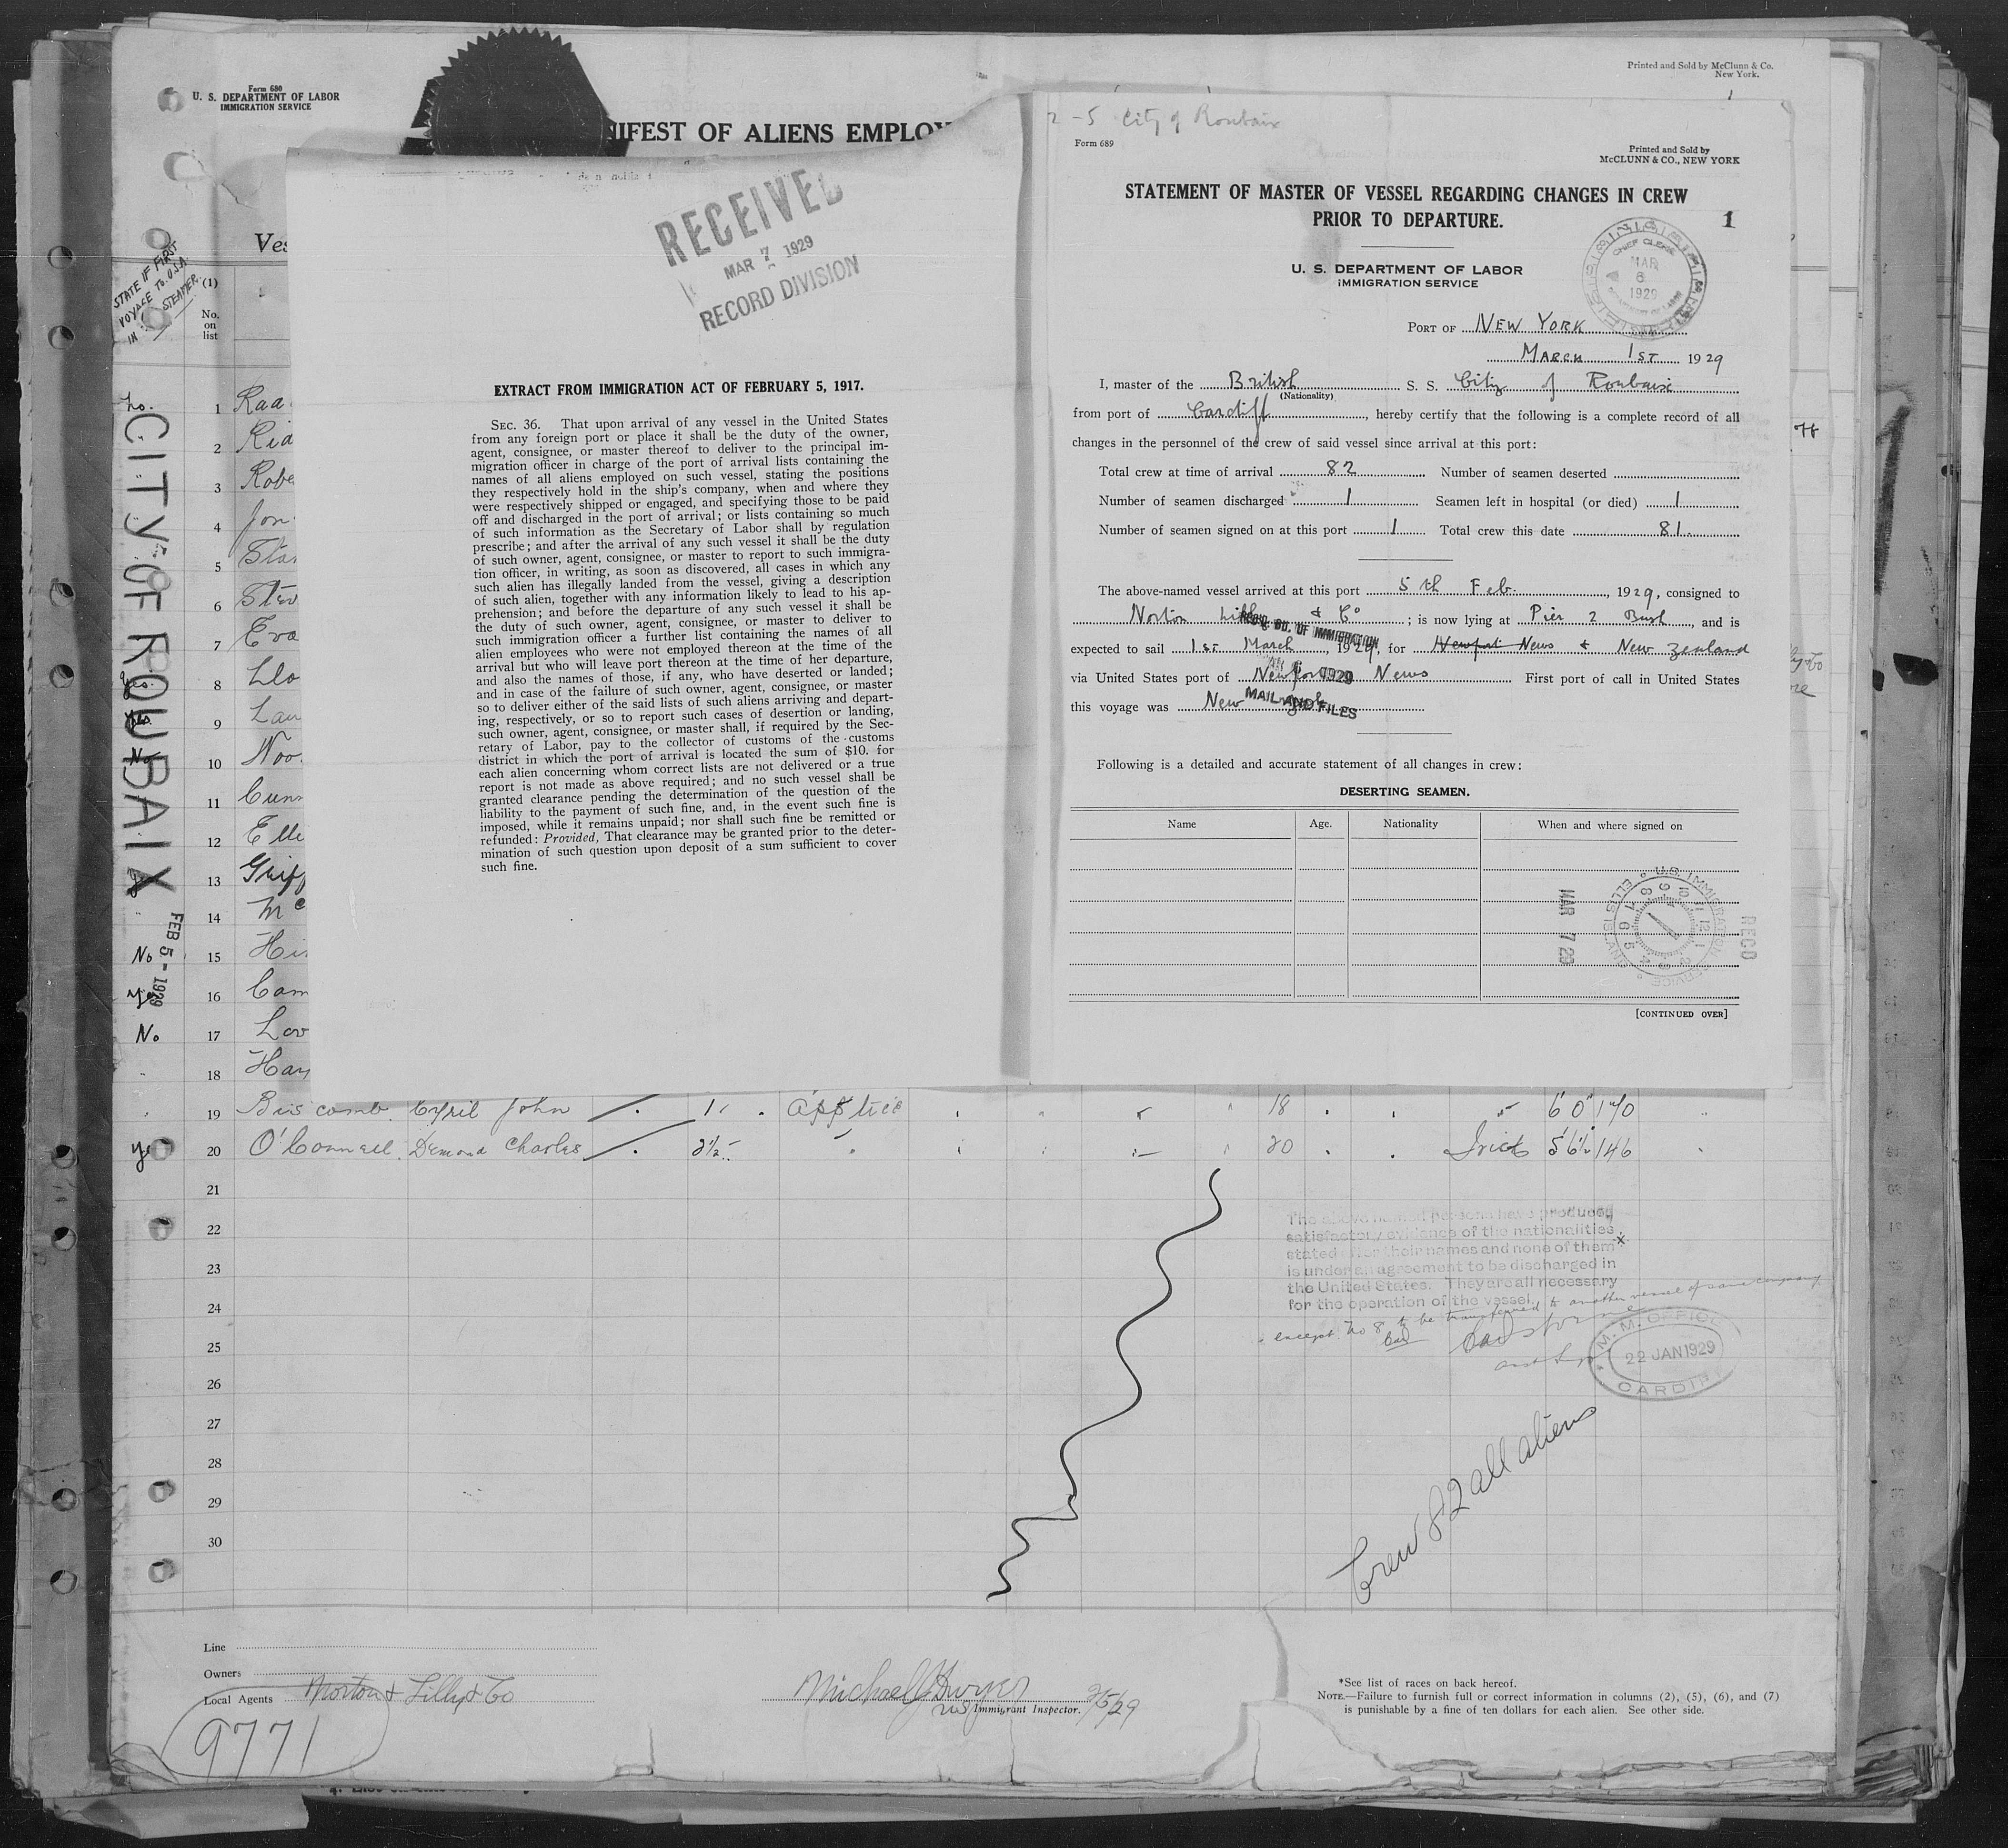 Form 680
U. S. DEPARTMENT OF LABOR
IMMIGRATION SERVICE
Printed and Sold by McClunn & Co.
New York.
NIFEST OF ALIENS EMPLOY
Ves
STATE IF FIRST
VOYAGE TO U.S.A.
IN STEAMER.
(1)
No.
on
list
CITY OF ROUBAIX
FEB 5 - 1929
1 Raa
2 Rid
3 Robe
4 Jon
5 Sta
6 Stev
7 Eva
Yes. 8 Llo
Yes. 9 Lau
No 10 Noo
11 Cunn
12 Elle
13 Griff
14 Mc
No 15 Hi
Yes 16 Cam
No 17 Lov
18 Har
19 Biscomb Cyril John 18 6' 0" 170
Yes 20 O'Connell Desmond Charles 2½ 20 Irish 5' 6½ 146
21
22
23
24
25
26
27
28
29
30
RECEIVED
MAR 7 1929
RECORD DIVISION
EXTRACT FROM IMMIGRATION ACT OF FEBRUARY 5, 1917.
SEC. 36. That upon arrival of any vessel in the United States
from any foreign port or place it shall be the duty of the owner,
agent, consignee, or master thereof to deliver to the principal im-
migration officer in charge of the port of arrival lists containing the
names of all aliens employed on such vessel, stating the positions
they respectively hold in the ship's company, when and where they
were respectively shipped or engaged, and specifying those to be paid
off and discharged in the port of arrival; or lists containing so much
of such information as the Secretary of Labor shall by regulation
prescribe; and after the arrival of any such vessel it shall be the duty
of such owner, agent, consignee, or master to report to such immigra-
tion officer, in writing, as soon as discovered, all cases in which any
such alien has illegally landed from the vessel, giving a description
of such alien, together with any information likely to lead to his ap-
prehension; and before the departure of any such vessel it shall be
the duty of such owner, agent, consignee, or master to deliver to
such immigration officer a further list containing the names of all
alien employees who were not employed thereon at the time of the
arrival but who will leave port thereon at the time of her departure,
and also the names of those, if any, who have deserted or landed;
and in case of the failure of such owner, agent, consignee, or master
so to deliver either of the said lists of such aliens arriving and depart-
ing, respectively, or so to report such cases of desertion or landing,
such owner, agent, consignee, or master shall, if required by the Sec-
retary of Labor, pay to the collector of customs of the customs
district in which the port of arrival is located the sum of $10. for
each alien concerning whom correct lists are not delivered or a true
report is not made as above required; and no such vessel shall be
granted clearance pending the determination of the question of the
liability to the payment of such fine, and, in the event such fine is
imposed, while it remains unpaid; nor shall such fine be remitted or
refunded: Provided, That clearance may be granted prior to the deter-
mination of such question upon deposit of a sum sufficient to cover
such fine.
2 - 5 City of Roubaix
Form 689
Printed and Sold by
McCLUNN & CO., NEW YORK
STATEMENT OF MASTER OF VESSEL REGARDING CHANGES IN CREW
PRIOR TO DEPARTURE.
1
CHIEF CLERK
MAR
6
1929
U. S. DEPARTMENT OF LABOR
IMMIGRATION SERVICE
PORT OF NEW YORK
MARCH 1ST 1929
I, master of the British S. S. City of Roubaix
(Nationality)
from port of Cardiff, hereby certify that the following is a complete record of all
changes in the personnel of the crew of said vessel since arrival at this port:
Total crew at time of arrival 82 Number of seamen deserted
Number of seamen discharged 1 Seamen left in hospital (or died) 1
Number of seamen signed on at this port 1 Total crew this date 81.
The above-named vessel arrived at this port 5th Feb., 1929, consigned to
Norton Lilly & Co; is now lying at Pier 2 Bush, and is
expected to sail 1st March, 1929, for Newport News & New Zealand
via United States port of Newport News First port of call in United States
this voyage was New York
REC'D BU. OF IMMIGRATION
1929
MAIL AND FILES
Following is a detailed and accurate statement of all changes in crew:
DESERTING SEAMEN.
Name Age. Nationality When and where signed on
RECD
U.S. IMMIGRATION SERVICE
ELLIS ISLAND
MAR 7 29
[CONTINUED OVER]
The above named persons have produced
satisfactory evidence of the nationalities
stated after their names and none of them x
is under an agreement to be discharged in
the United States. They are all necessary
for the operation of the vessel.
x except No 8 to be transferred to another vessel of same company
M. M. OFFICE
22 JAN 1929
CARDIFF
Crew 82 all aliens
Line
Owners
Local Agents Norton Lilly & Co
9771
Michael J Dwyer
Immigrant Inspector. 2/5/29
*See list of races on back hereof.
NOTE.—Failure to furnish full or correct information in columns (2), (5), (6), and (7)
is punishable by a fine of ten dollars for each alien. See other side.